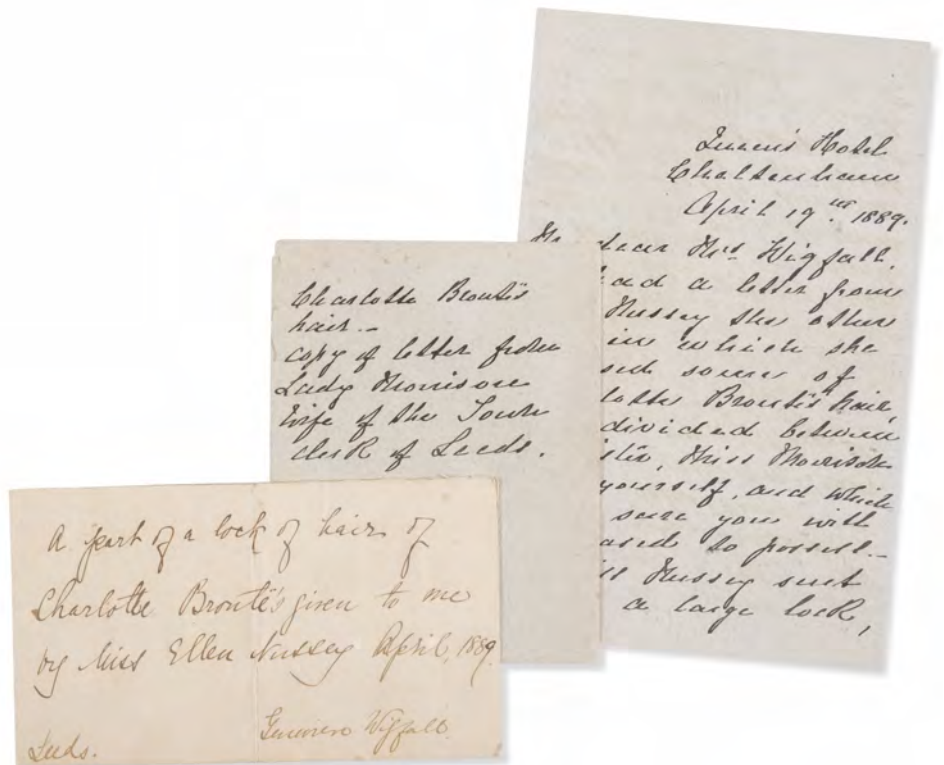 Queen's Hotel
Cheltenham
April 19th. 1889.
dear Mrs Wigfall,
had a letter from
Nussey the other
in which she
sed some of
lotte Brontë's hair,
divided between
ister, Miss Morrison
yourself, and which
sure you with
ased to possess.—
Nussey sent
a large lock,
Charlotte Brontë's
hair.—
copy of letter from
Lady Morrison
Wife of the Town
clerk of Leeds.
A part of a lock of hair of
Charlotte Brontë's given to me
by Miss Ellen Nussey April, 1889.
Wigfall.
Leeds.